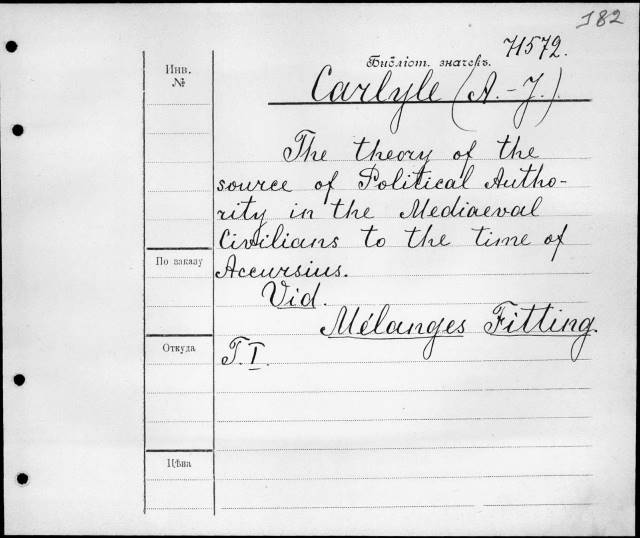 182
Инв.
№
Библіот. значекъ.
71572.
Carlyle (A.-J.).
The theory of the
source of Political Autho-
rity in the Mediaeval
Civilians to the time of
Accursius.
Vid.
Mélanges Fitting.
T. I.
По заказу
Откуда
Цѣна